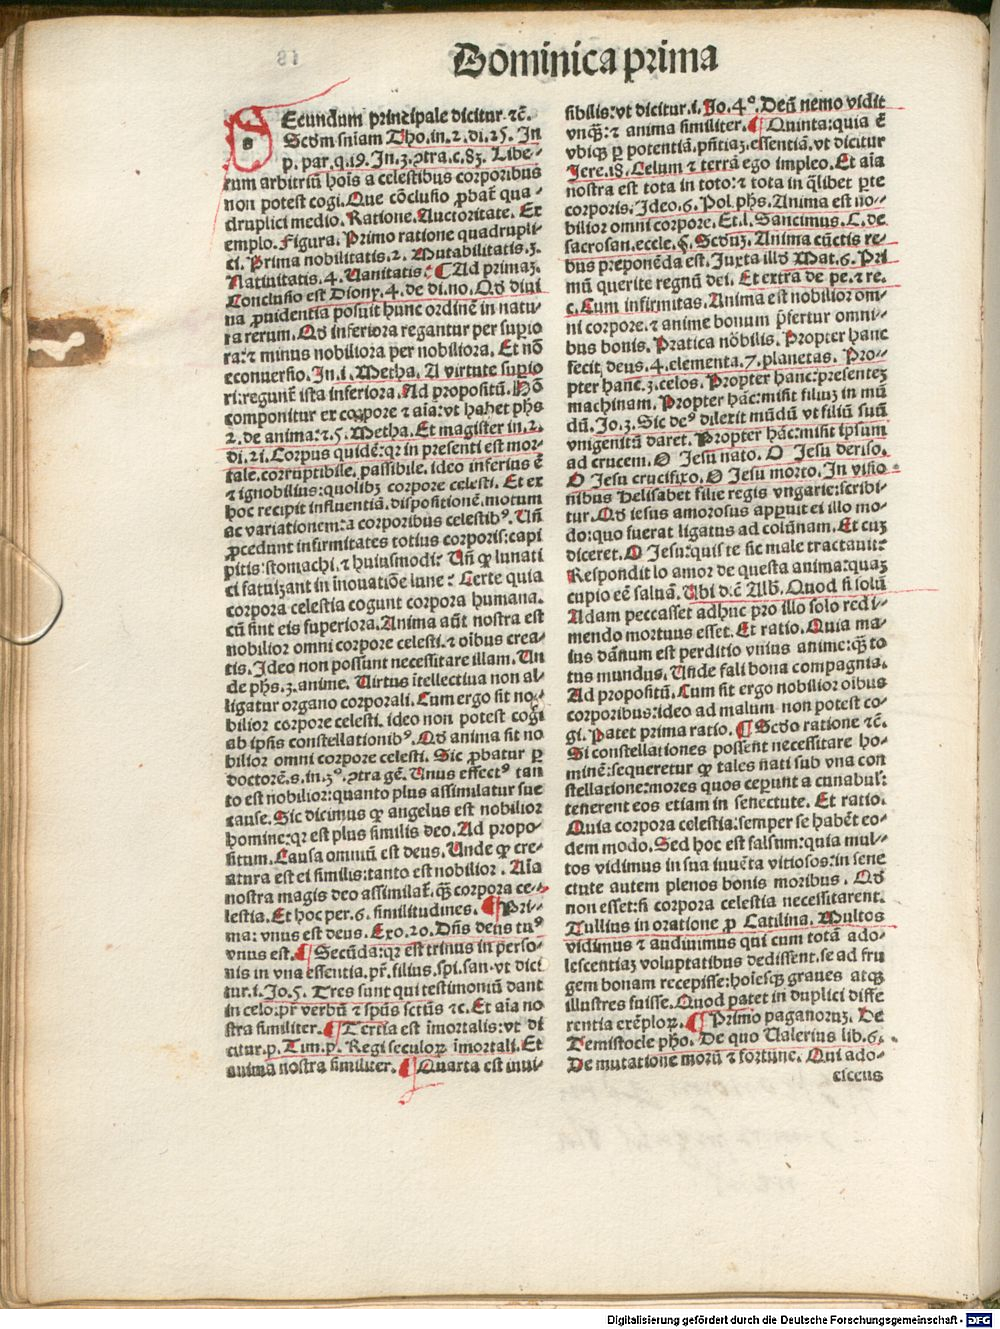 Dominica prima
Secundum principale dicitur ⁊c̄.
Scd̄m sn̄iam Tho. in. 2. di. 25. In
p. par. q. 19. In. 3. ꝯtra. c. 83. Libe⸗
rum arbitriū hoīs a celestibus corporibus
non potest cogi. Que cōclusio ꝓbat᷑ qua⸗
druplici medio. Ratione. Auctoritate. Ex
emplo. Figura. Primo ratione quadrupli⸗
ci. Prima nobilitatis. 2. Mutabilitatis. 3.
Natiuitatis. 4. Uanitatis. ¶ Ad primaꝫ.
Conclusio est Dionẏ. 4. de di. no. Qđ diui
na ꝓuidentia posuit hunc ordinē in natu⸗
ra rerum. Qđ inferiora regantur per supio
ra: ⁊ minus nobiliora per nobiliora. Et nō
econuerso. In. i. Metha. A virtute supio
ri: regunt᷑ ista inferiora. Ad propositū. Hō
componitur ex corpore ⁊ aīa: vt habet phs
2. de anima: ⁊. 5. Metha. Et magister in. 2.
di. 2i. Corpus quidē: qr in presenti est mor⸗
tale. corruptibile. passibile. ideo inferius ē
⁊ ignobilius: quolibꝫ corpore celesti. Et ex
hoc recipit influentiā. dispositionē. motum
ac variationem: a corporibus celestibꝰ. Uñ
ꝓcedunt infirmitates totius corporis: capi
pitis: stomachi. ⁊ huiusmodi: Uñ ꝙ lunati
ci fatuizant in inouatiōe lune: Certe quia
corpora celestia cogunt corpora humana.
cū sint eis superiora. Anima aūt nostra est
nobilior omni corpore celesti. ⁊ oībus crea⸗
tis. Ideo non possunt necessitare illam. Un
de phs. 3. anime. Uirtus ītellectiua non al⸗
ligatur organo corporali. Cum ergo sit no⸗
bilior corpore celesti. ideo non potest cogi
ab ipsis constellationibꝰ. Qđ anima sit no
bilior omni corpore celesti. Sic ꝓbatur ꝑ
doctorē. s. in. 3º. ꝯtra gē. Unus effectꝰ tan
to est nobilior: quanto plus assimilatur sue
cause. Sic dicimus ꝙ angelus est nobilior
homine: qr est plus similis deo. Ad propo⸗
situm. Causa omniū est deus. Unde ꝙ cre⸗
atura est ei similis: tanto est nobilior. Aīa
nostra magis deo assimilat᷑. qꝫ corpora ce⸗
lestia. Et hoc per. 6. similitudines. ¶ Pri⸗
ma: vnus est deus. Exo. 20. Dn̄s deus tuꝰ
vnus est. ¶ Secūda: qr est trinus in perso⸗
nis in vna essentia. pr̄. filius. spi. san. vt dici
tur. i. Jo. 5. Tres sunt qui testimoniū dant
in celo: pr̄ verbū ⁊ spūs sctūs ⁊c. Et aīa no
stra similiter. ¶ Tertia est īmortalis: vt di
citur. p. Tim. p. Regi seculoꝝ īmortali. Et
anima nostra similiter. ¶ Quarta est inui⸗
sibilis: vt dicitur. i. Jo. 4º. Deū nemo vidit
vnqꝫ: ⁊ anima similiter. ¶ Quinta: quia ē
vbiqꝫ ꝑ potentiā. pn̄tiaꝫ. essentiā. vt dicitur
Jere. 18. Celum ⁊ terrā ego impleo. Et aīa
nostra est tota in toto: ⁊ tota in qͥlibet ꝑte
corporis. Ideo. 6. Pol. phs. Anima est no⸗
bilior omni corpore. Et. l. Sancimus. C. de
sacrosan. eccle. §. Scdꝫ. Anima cūctis re⸗
bus preponēda est. Juxta illđ Mat. 6. Pri
mū querite regnū dei. Et extra de pe. ⁊ re.
c. Cum infirmitas. Anima est nobilior om⸗
ni corpore. ⁊ anime bonum p̄fertur omni⸗
bus bonis. Pratica nōbilis. Propter hanc
fecit deus. 4. elementa. 7. planetas. Pro⸗
pter hanc. 3. celos. Propter hanc: presenteꝫ
machinam. Propter hāc: misit filiuꝫ in mū
dū. Jo. 3. Sic deꝰ dilexit mūdū vt filiū suū
vnigenitū daret. Propter hāc: misit ipsum
ad crucem. O Jesu nato. O Jesu deriso.
O Jesu crucifixo. O Jesu morto. In visio⸗
nibus Helisabet filie regis vngarie: scribi⸗
tur. Qđ iesus amorosus apꝑuit ei illo mo⸗
do: quo fuerat ligatus ad colūnam. Et cuꝫ
diceret. O Jesu: quis te sic male tractauit:
Respondit lo amor de questa anima: quaꝫ
cupio eē saluā. Ubi d. c̄ Alb. Quod si solū
Adam peccasset adhuc pro illo solo redi⸗
mendo mortuus esset. Et ratio. Quia ma⸗
ius dānum est perditio vnius anime: qꝫ to
tus mundus. Unde fali bona compagnia.
Ad propositū. Cum sit ergo nobilior oibus
corporibus: ideo ad malum non potest co⸗
gi. Patet prima ratio. ¶ Scđo ratione ⁊c̄.
Si constellationes possent necessitare ho⸗
minē: sequeretur ꝙ tales nati sub vna con
stellatione: mores quos ceperunt a cunabul':
tenerent eos etiam in senectute. Et ratio.
Quia corpora celestia: semper se habēt eo⸗
dem modo. Sed hoc est falsum: quia mul⸗
tos vidimus in sua iuuēta vitiosos: in sene
ctute autem plenos bonis moribus. Qđ
non esset: si corpora celestia necessitarent.
Tullius in oratione ꝓ Catilina. Multos
vidimus ⁊ audiuimus qui cum totā ado⸗
lescentiaꝫ voluptatibus dedissent. se ad fru
gem bonam recepisse: hoīesqꝫ graues atqꝫ
illustres fuisse. Quod patet in duplici diffe
rentia exēploꝝ. ¶ Primo paganoruꝫ. De
Temistocle pho. De quo Ualerius lib. 6.
De mutatione morū ⁊ fortune. Qui ado⸗
escens
Digitalisierung gefördert durch die Deutsche Forschungsgemeinschaft - DFG